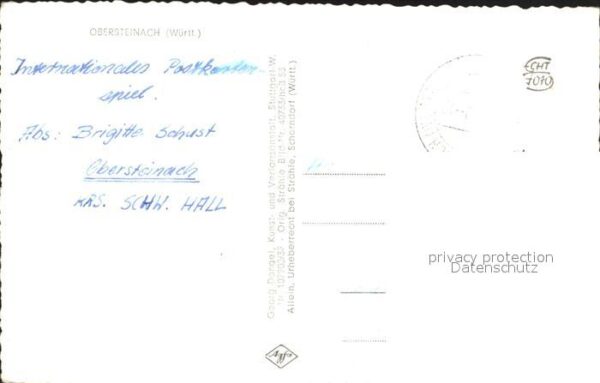 OBERSTEINACH (Württ.)
Internationales Postkarten-
spiel.
Abs: Brigitte Schust
Obersteinach
KRS. SCHW. HALL
Georg Dangel, Kunst- und Verlagsanstalt, Stuttgart-W.
Orig. Strähle Bild Nr.
Allein. Urheberrecht bei Strähle, Schorndorf (Württ.)
Agfa
CHT
7070
privacy protection
Datenschutz